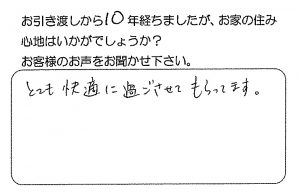 お引き渡しから10年経ちましたが、お家の住み
心地はいかがでしょうか？
お客様のお声をお聞かせ下さい。
とても快適に過ごさせてもらってます。